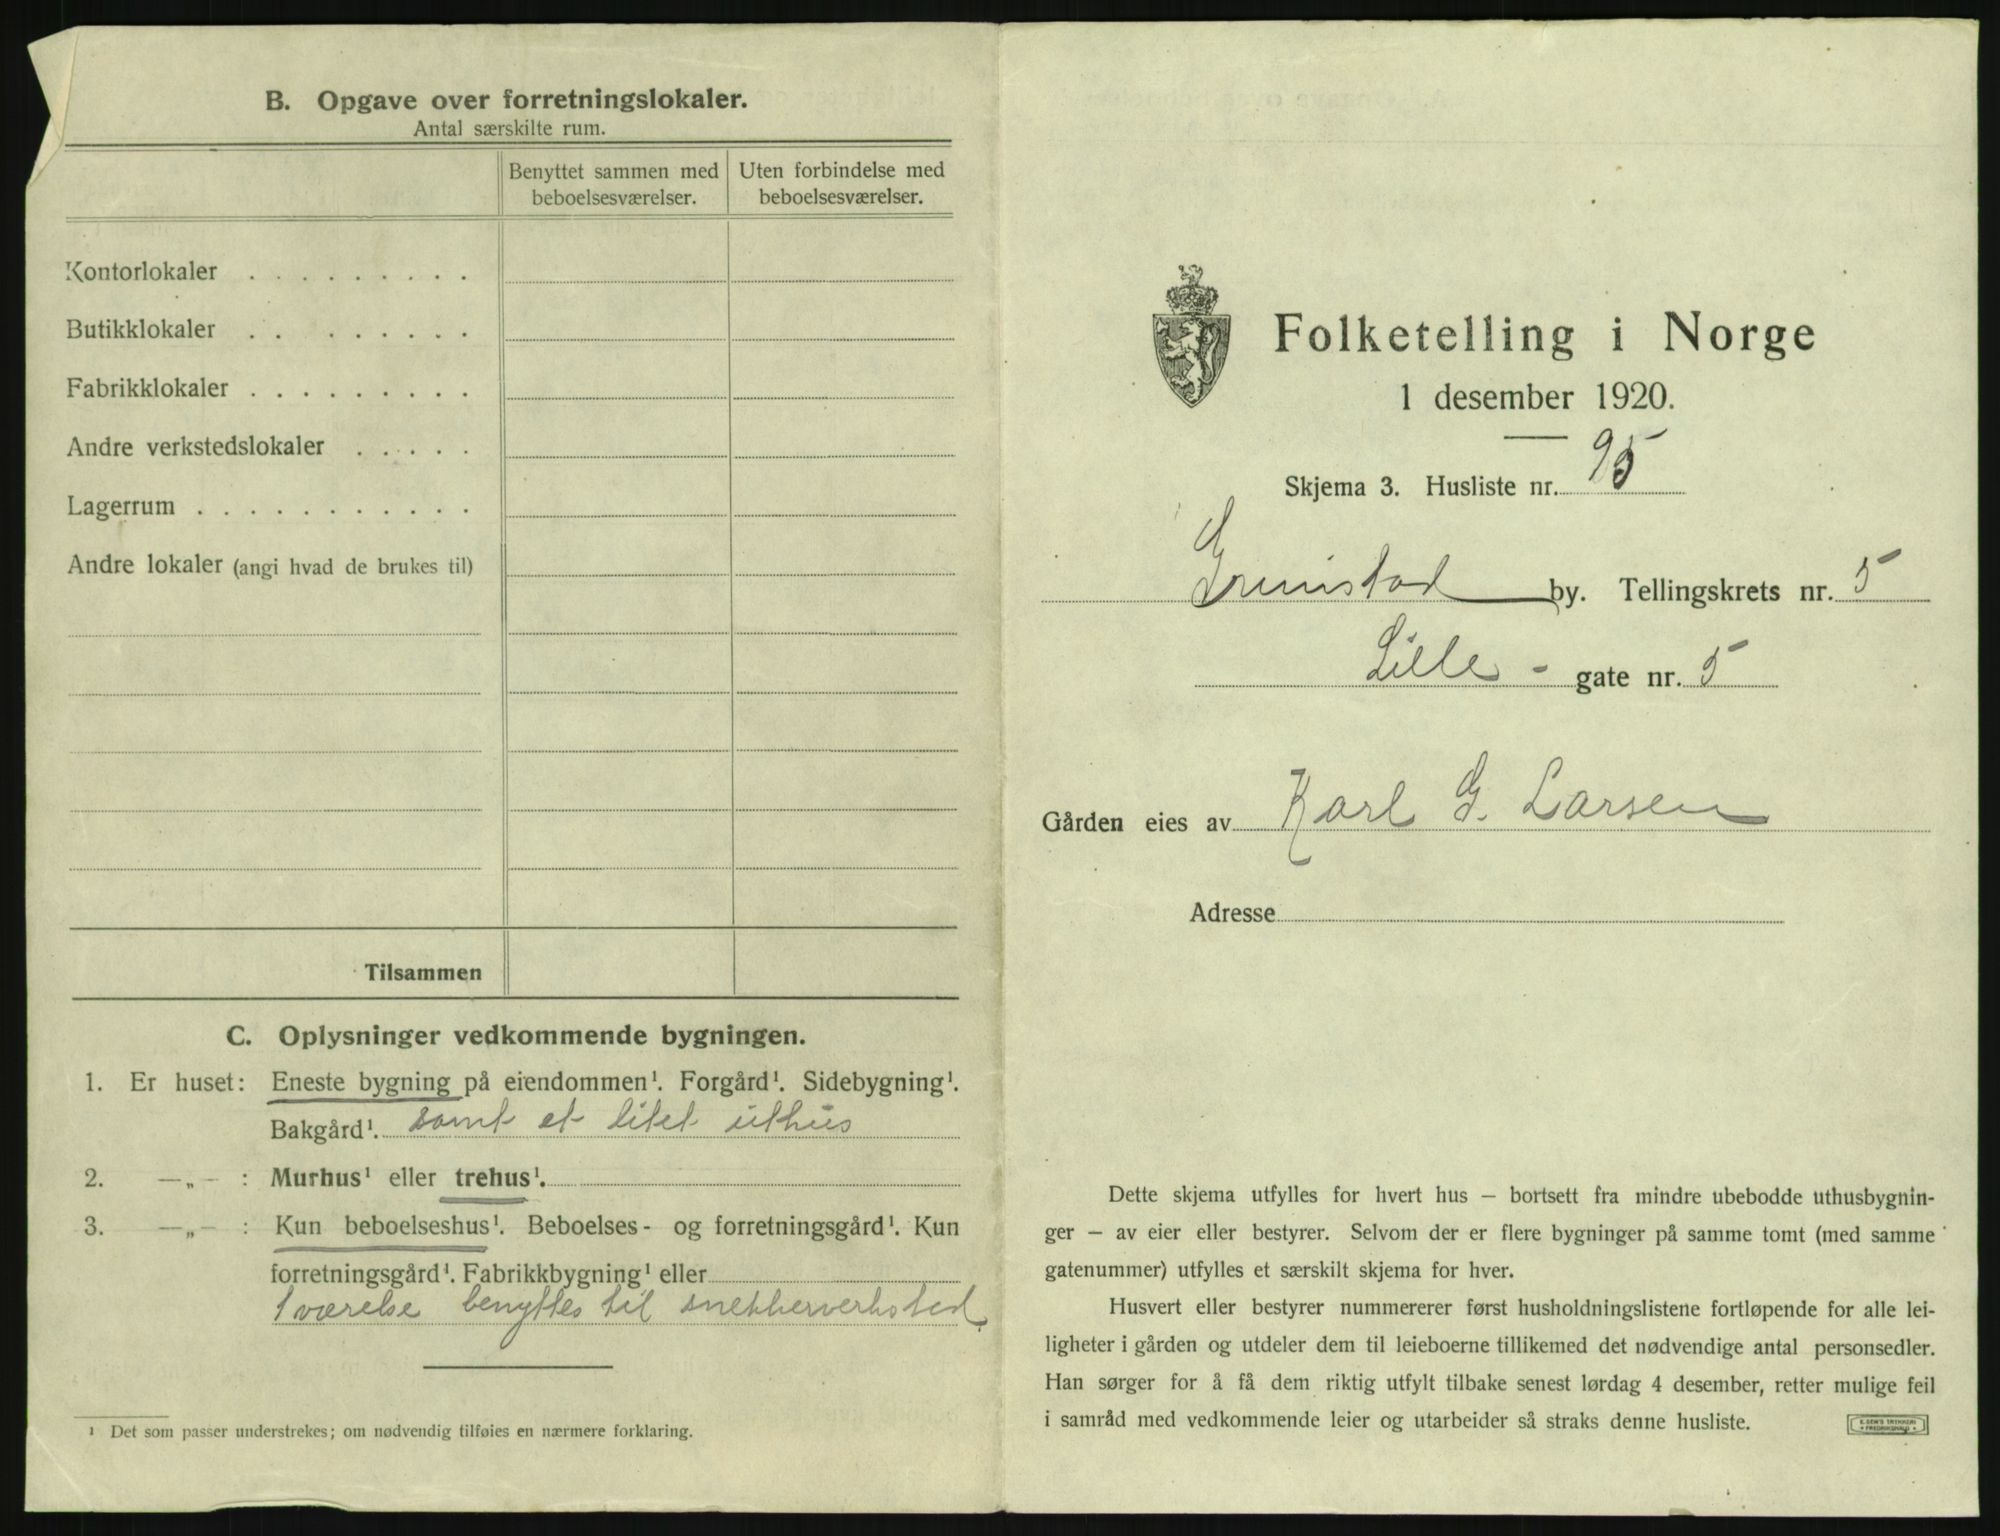 B. Opgave over forretningslokaler.
Antal særskilte rum.
Benyttet sammen med beboelsesværelser.
Uten forbindelse med beboelsesværelser.
Kontorlokaler . . . . . . . . .
Butikklokaler . . . . . . . .
Fabrikklokaler . . . . . . . . .
Andre verkstedslokaler . . . . .
Lagerrum . . . . . . . . . . .
Andre lokaler (angi hvad de brukes til)
Tilsammen
C. Oplysninger vedkommende bygningen.
1. Er huset: Eneste bygning på eiendommen¹. Forgård¹. Sidebygning¹.
Bakgård¹. samt et litet uthus
2. —„— : Murhus¹ eller trehus¹.
3. —„— : Kun beboelseshus¹. Beboelses- og forretningsgård¹. Kun
forretningsgård¹. Fabrikkbygning¹ eller
1 værelse benyttes til snekkerverksted.
¹ Det som passer understrekes; om nødvendig tilføies en nærmere forklaring.
Folketelling i Norge
1 desember 1920.
Skjema 3. Husliste nr. 95
Grimstad by. Tellingskrets nr. 5
Lille - gate nr. 5
Gården eies av Karl G. Larsen
Adresse
Dette skjema utfylles for hvert hus — bortsett fra mindre ubebodde uthusbygnin-
ger — av eier eller bestyrer. Selvom der er flere bygninger på samme tomt (med samme
gatenummer) utfylles et særskilt skjema for hver.
Husvert eller bestyrer nummererer først husholdningslistene fortløpende for alle lei-
ligheter i gården og utdeler dem til leieboerne tillikemed det nødvendige antal personsedler.
Han sørger for å få dem riktig utfylt tilbake senest lørdag 4 desember, retter mulige feil
i samråd med vedkommende leier og utarbeider så straks denne husliste.